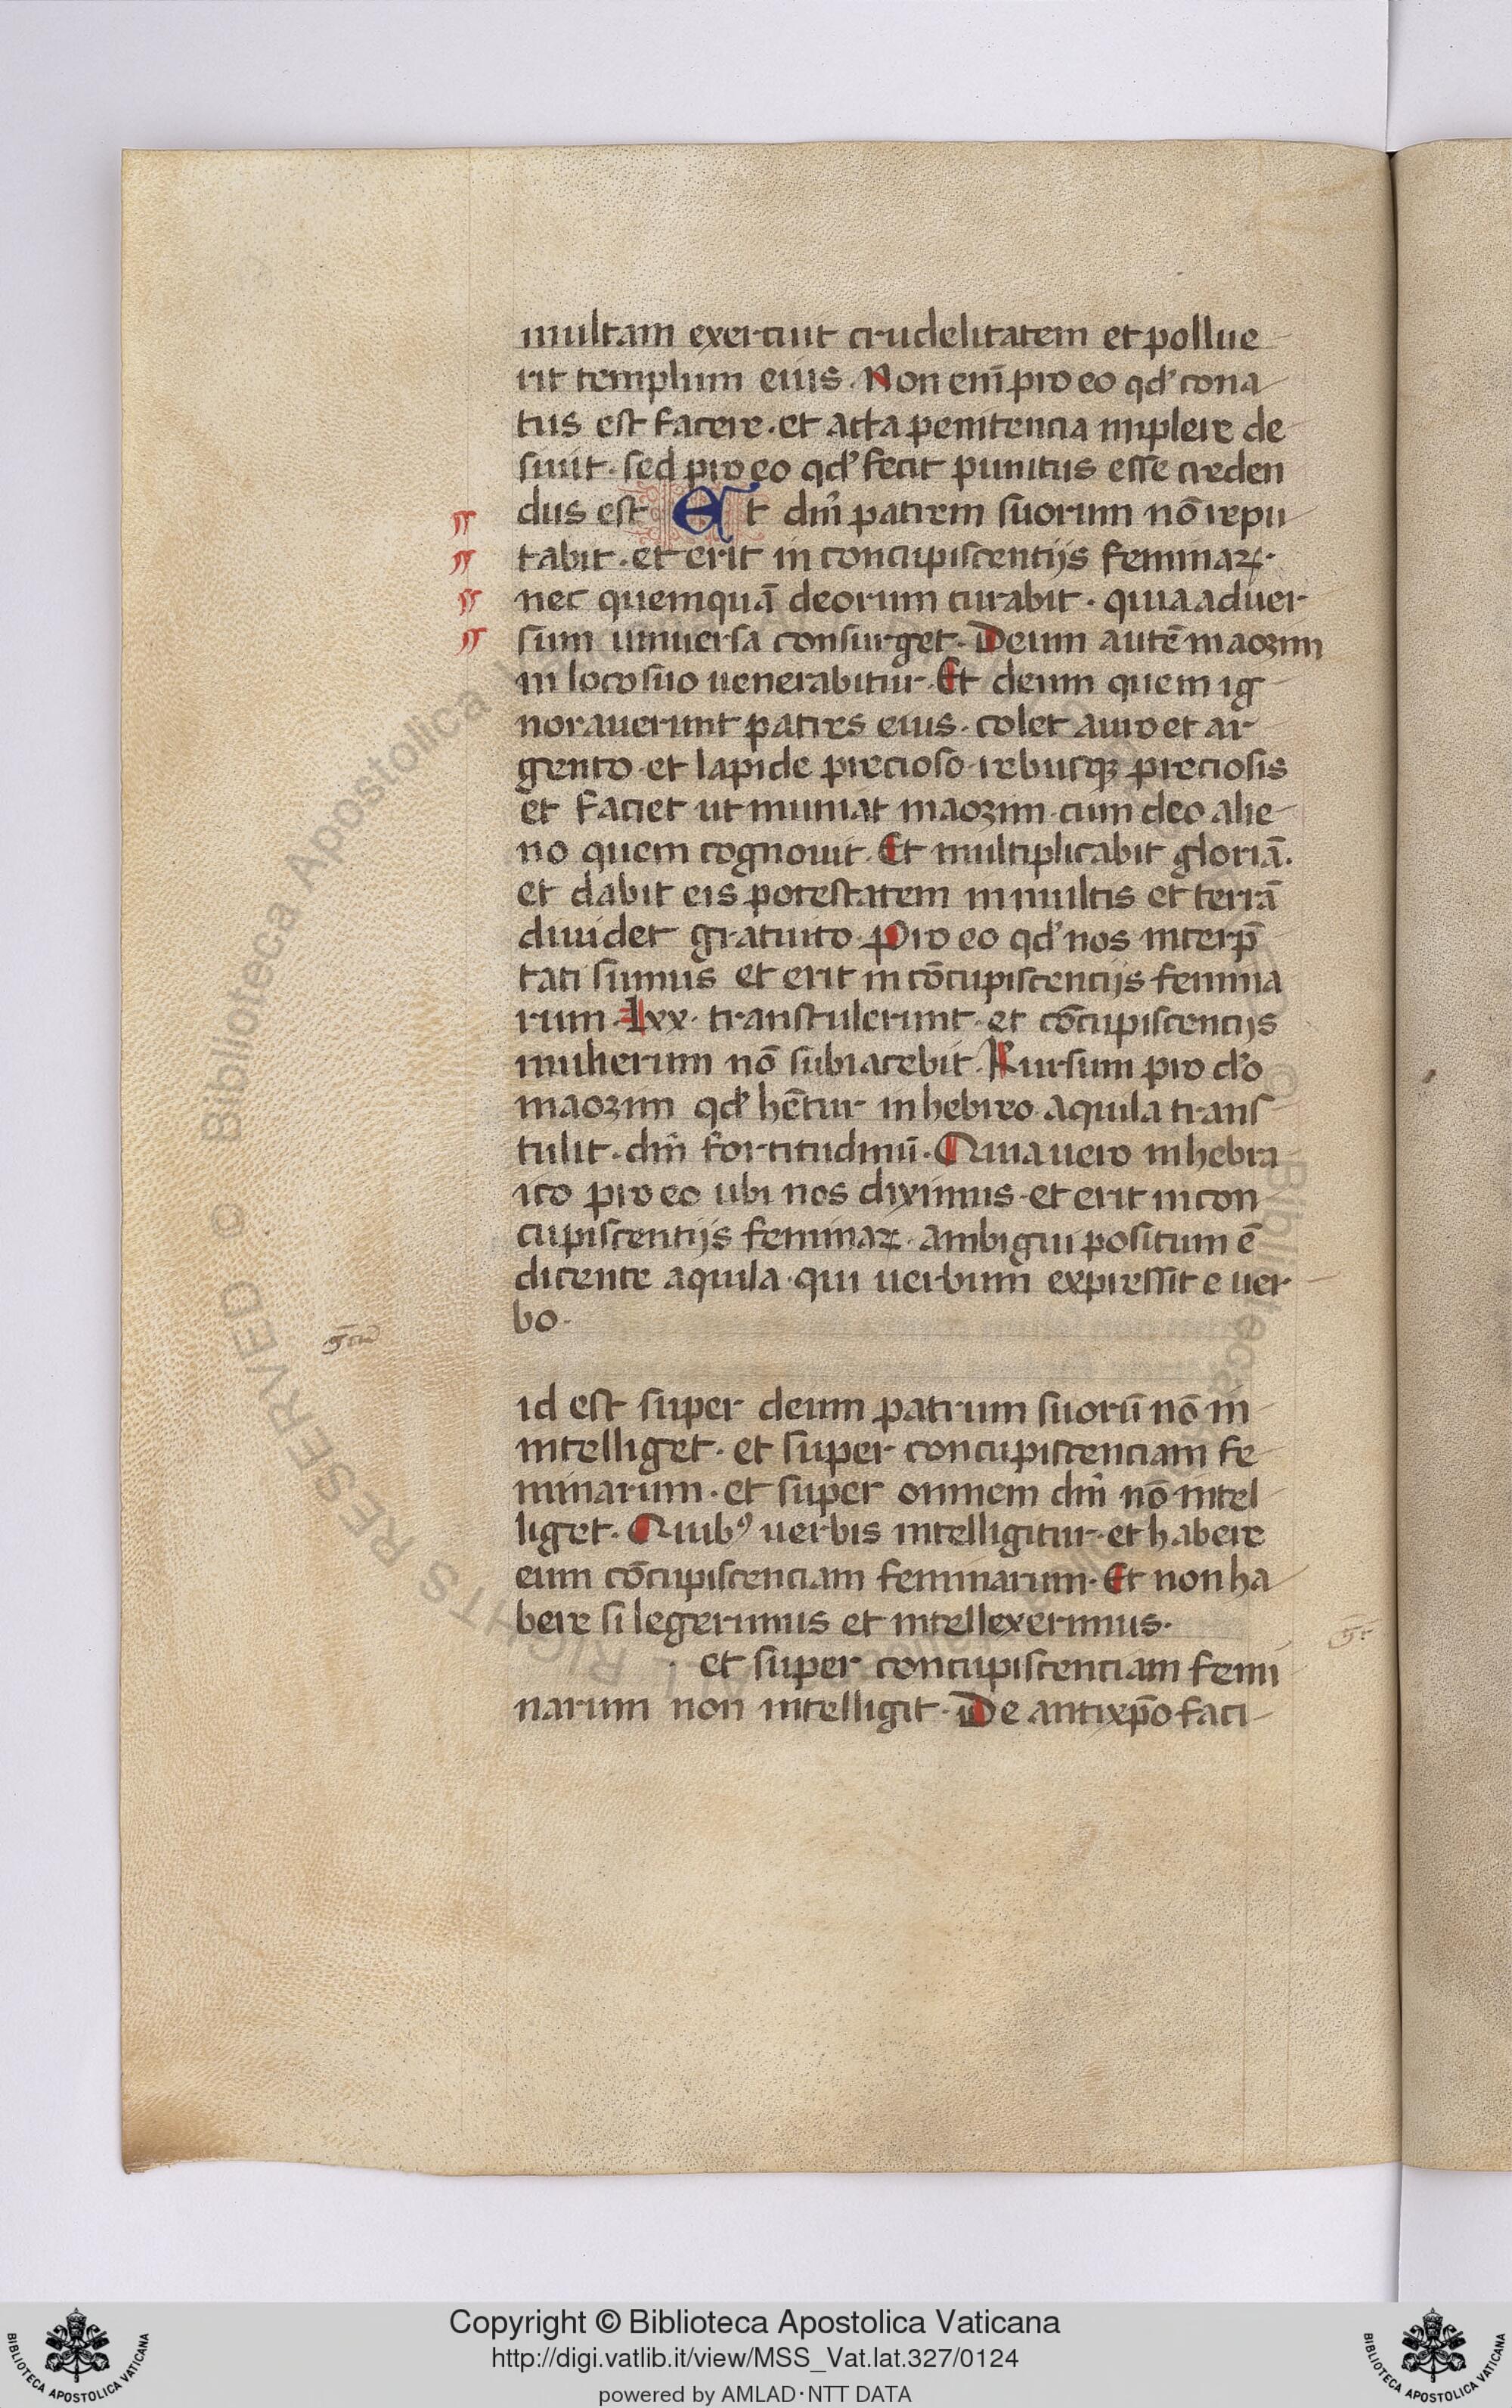 multam exercuit crudelitatem et pollue
rit templum eius. Non enī pro eo qd' cona
tus est facere. et acta penitencia implere de
siuit. sed pro eo qd' fecit punitus esse creden
dus est. Et dm̄ patrem suorum nō repu
tabit. et erit in concupiscentijs feminaꝝ.
nec quemquā deorum curabit. quia aduer
sum uniuersa consurget. Deum autē maozim
in loco suo uenerabitur. Et deum quem ig
norauerunt patres eius. colet auro et ar
gento. et lapide precioso. rebusqꝫ preciosis
et faciet ut muniat maozim. cum deo alie
no quem cognouit. Et multiplicabit gloriā.
et dabit eis potestatem in multis et terrā
diuidet gratuito. Pro eo qd' nos interp̄
tati sumus et erit in cōcupiscencijs femina
rum. Lxx. transtulerunt. et cōcupiscencijs
mulierum nō subiacebit. Rursum pro do
maozim qd' hētur in hebreo. aquila trans
tulit. dm̄ fortitudinū. Quia uero in hebra
ico pro eo ubi nos diximus. et erit in con
cupiscentijs feminaꝝ. ambigui positum ē
dicente aquila. qui uerbum expressit e uer
bo.
id est super deum patrum suorū nō in
intelliget. et super concupiscenciam fe
minarum. et super omnem dm̄ nō intel
liget. Quibꝰ uerbis intelligitur. et habere
eum cōcupiscenciam feminarum. Et non ha
bere si legerimus et intellexerimus.
et super concupiscenciam femi
narum non intelligit. De antixp̄o faci
Copyright © Biblioteca Apostolica Vaticana
http://digi.vatlib.it/view/MSS_Vat.lat.327/0124
powered by AMLAD·NTT DATA